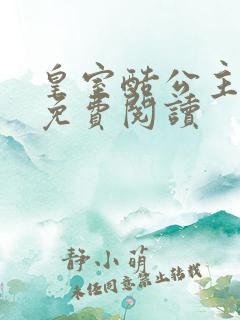 皇室酷公主
免費閱讀
靜小萌
未經同意禁止轉載